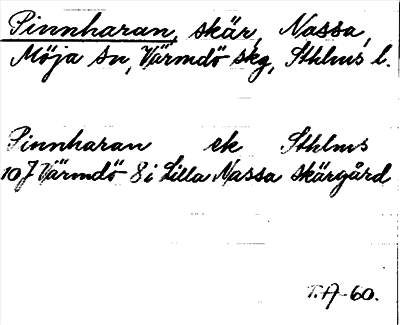 Pinnharan, skär, Nassa,
Möja sn, Värmdö skg, Sthlms l.
Pinnharan ek Sthlms
10 J Värmdö 8 i Lilla Nassa skärgård
T.A-60.